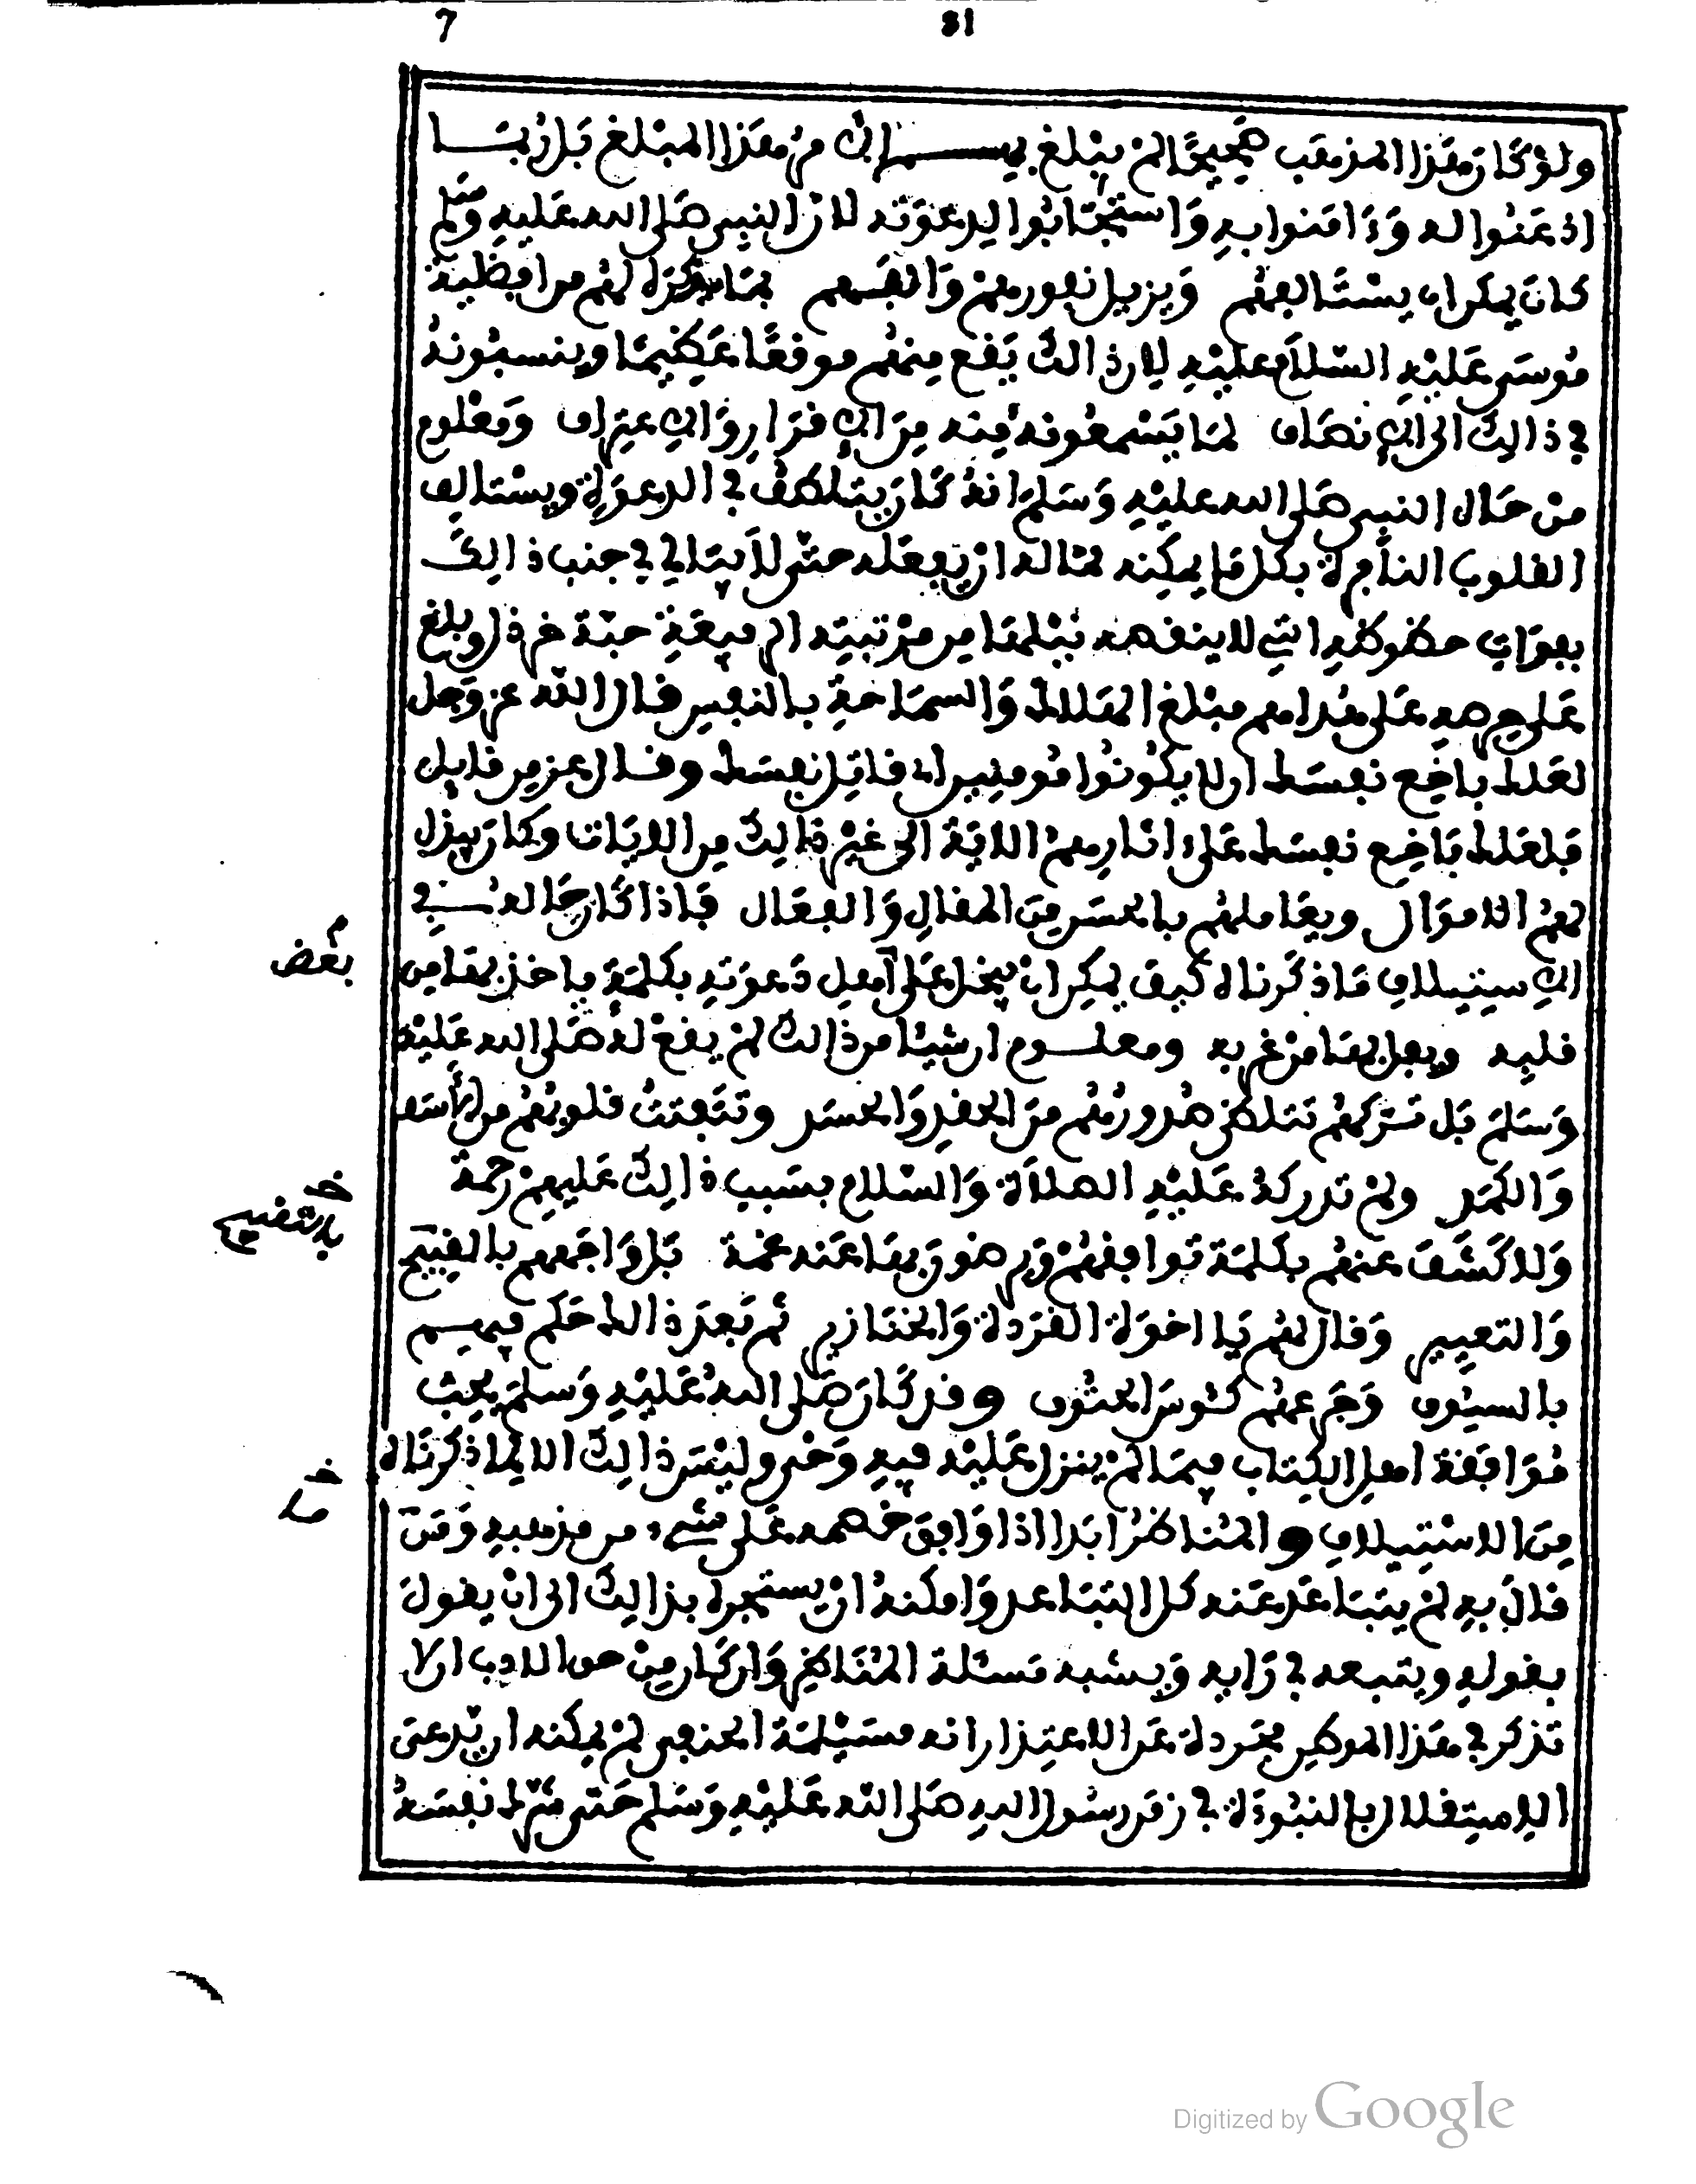 7 81
ولو كان هذا المذهب صحيحا لم يبلغ بهم الى من هذا المبلغ بل ربما
اذعنوا له وءامنوا به واستجابوا لدعوته لان النبي صلى الله عليه وسلم
كان يمكن ان يستالفهم ويزيل نفورهم والفهم بما لهم من افضلية
موسى عليه السلام عليه لان ذالك يقع منهم موقعا عظيما وينسبونه
في ذالك الى الانصاف لما يسمعونه منه من الاقرار والاعتراف ومعلوم
من حال النبي صلى الله عليه وسلم انه كان يتلطف في الدعوة ويستالف
القلوب النافرة بكل ما يمكنه مما له ان يفعله حتى لا يبالي في جنب ذالك
بفوات حظوظه التي لا ينقصه نيلها من مرتبته الرفيعة حبة خردل وبلغ
على حرصه على هداهم مبلغ الهلاك والسماحة بالنفس قال الله عز وجل
لعلك باخع نفسك الا يكونوا مومنين اي قاتل نفسك وقال عز من قايل
فلعلك باخع نفسك على اثارهم الاية الى غير ذالك من الايات وكان يبذل
لهم الاموال ويعاملهم بالحسن من المقال والفعال فاذا كان حاله في
الاستيلاف ما ذكرناه كيف يمكن ان يبخل على اهل دعوته بكلمة ياخذ بها من
بعض
قلبه ويفل بها من غربه ومعلوم ان شيئا من ذالك لم يقع له صلى الله عليه
وسلم بل تركهم تتلظى صدورهم من الحقد والحسد وتتفتت قلوبهم من الاسف
والكمد ولم تدركه عليه الصلاة والسلام بسبب ذالك عليهم رحمة
ولا كشف عنهم بكلمة توافقهم ويرضون بها عنه غمة بل واجههم بالقبيح
بالتقبيح
والتعيير وقال لهم يا اخوة القردة والخنازير ثم بعد ذالك حكم فيهم
بالسيوف وجرعهم كئوس الحتوف وقد كان صلى الله عليه وسلم يحب
موافقة اهل الكتاب فيما لم ينزل عليه فيه وحي وليس ذالك الا لما ذكرناه
خ ما
من الاستيلاف والمناظر ابدا اذا وافق خصمه على شيء من مذهبه ومن
قال به لم يتباعد عنه كل التباعد وامكنه ان يستجره بذالك الى ان يقول
بقوله ويتبعه في رايه ويشبه مسئلة المناظر وان كان من حق الادب ان لا
تذكر في هذا الموطن مجردة عن الاعتذار انه مسيلمة الحنفي لم يمكنه ان يدعي
الاستقلال بالنبوءة في زمن رسول الله صلى الله عليه وسلم حتى شرك نفسه
Digitized by Google